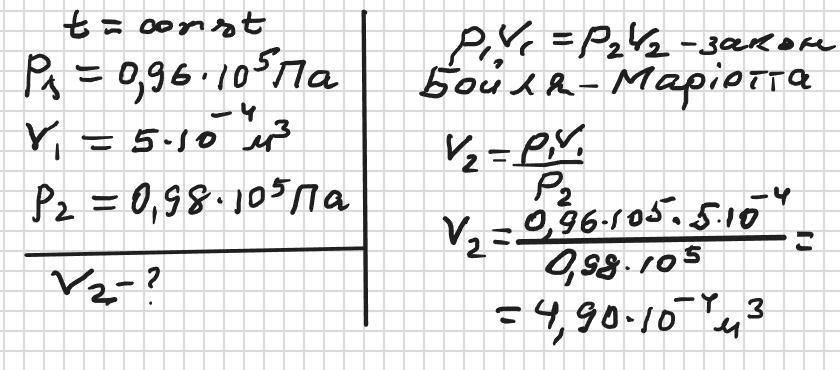 t = const
P₁ = 0,96·10⁵ Па
V₁ = 5·10⁻⁴ м³
P₂ = 0,98·10⁵ Па
V₂ - ?
P₁V₁ = P₂V₂ - закон
Бойля - Маріотта
V₂ = P₁V₁ / P₂
V₂ = 0,96·10⁵·5·10⁻⁴ / 0,98·10⁵ =
= 4,90·10⁻⁴ м³